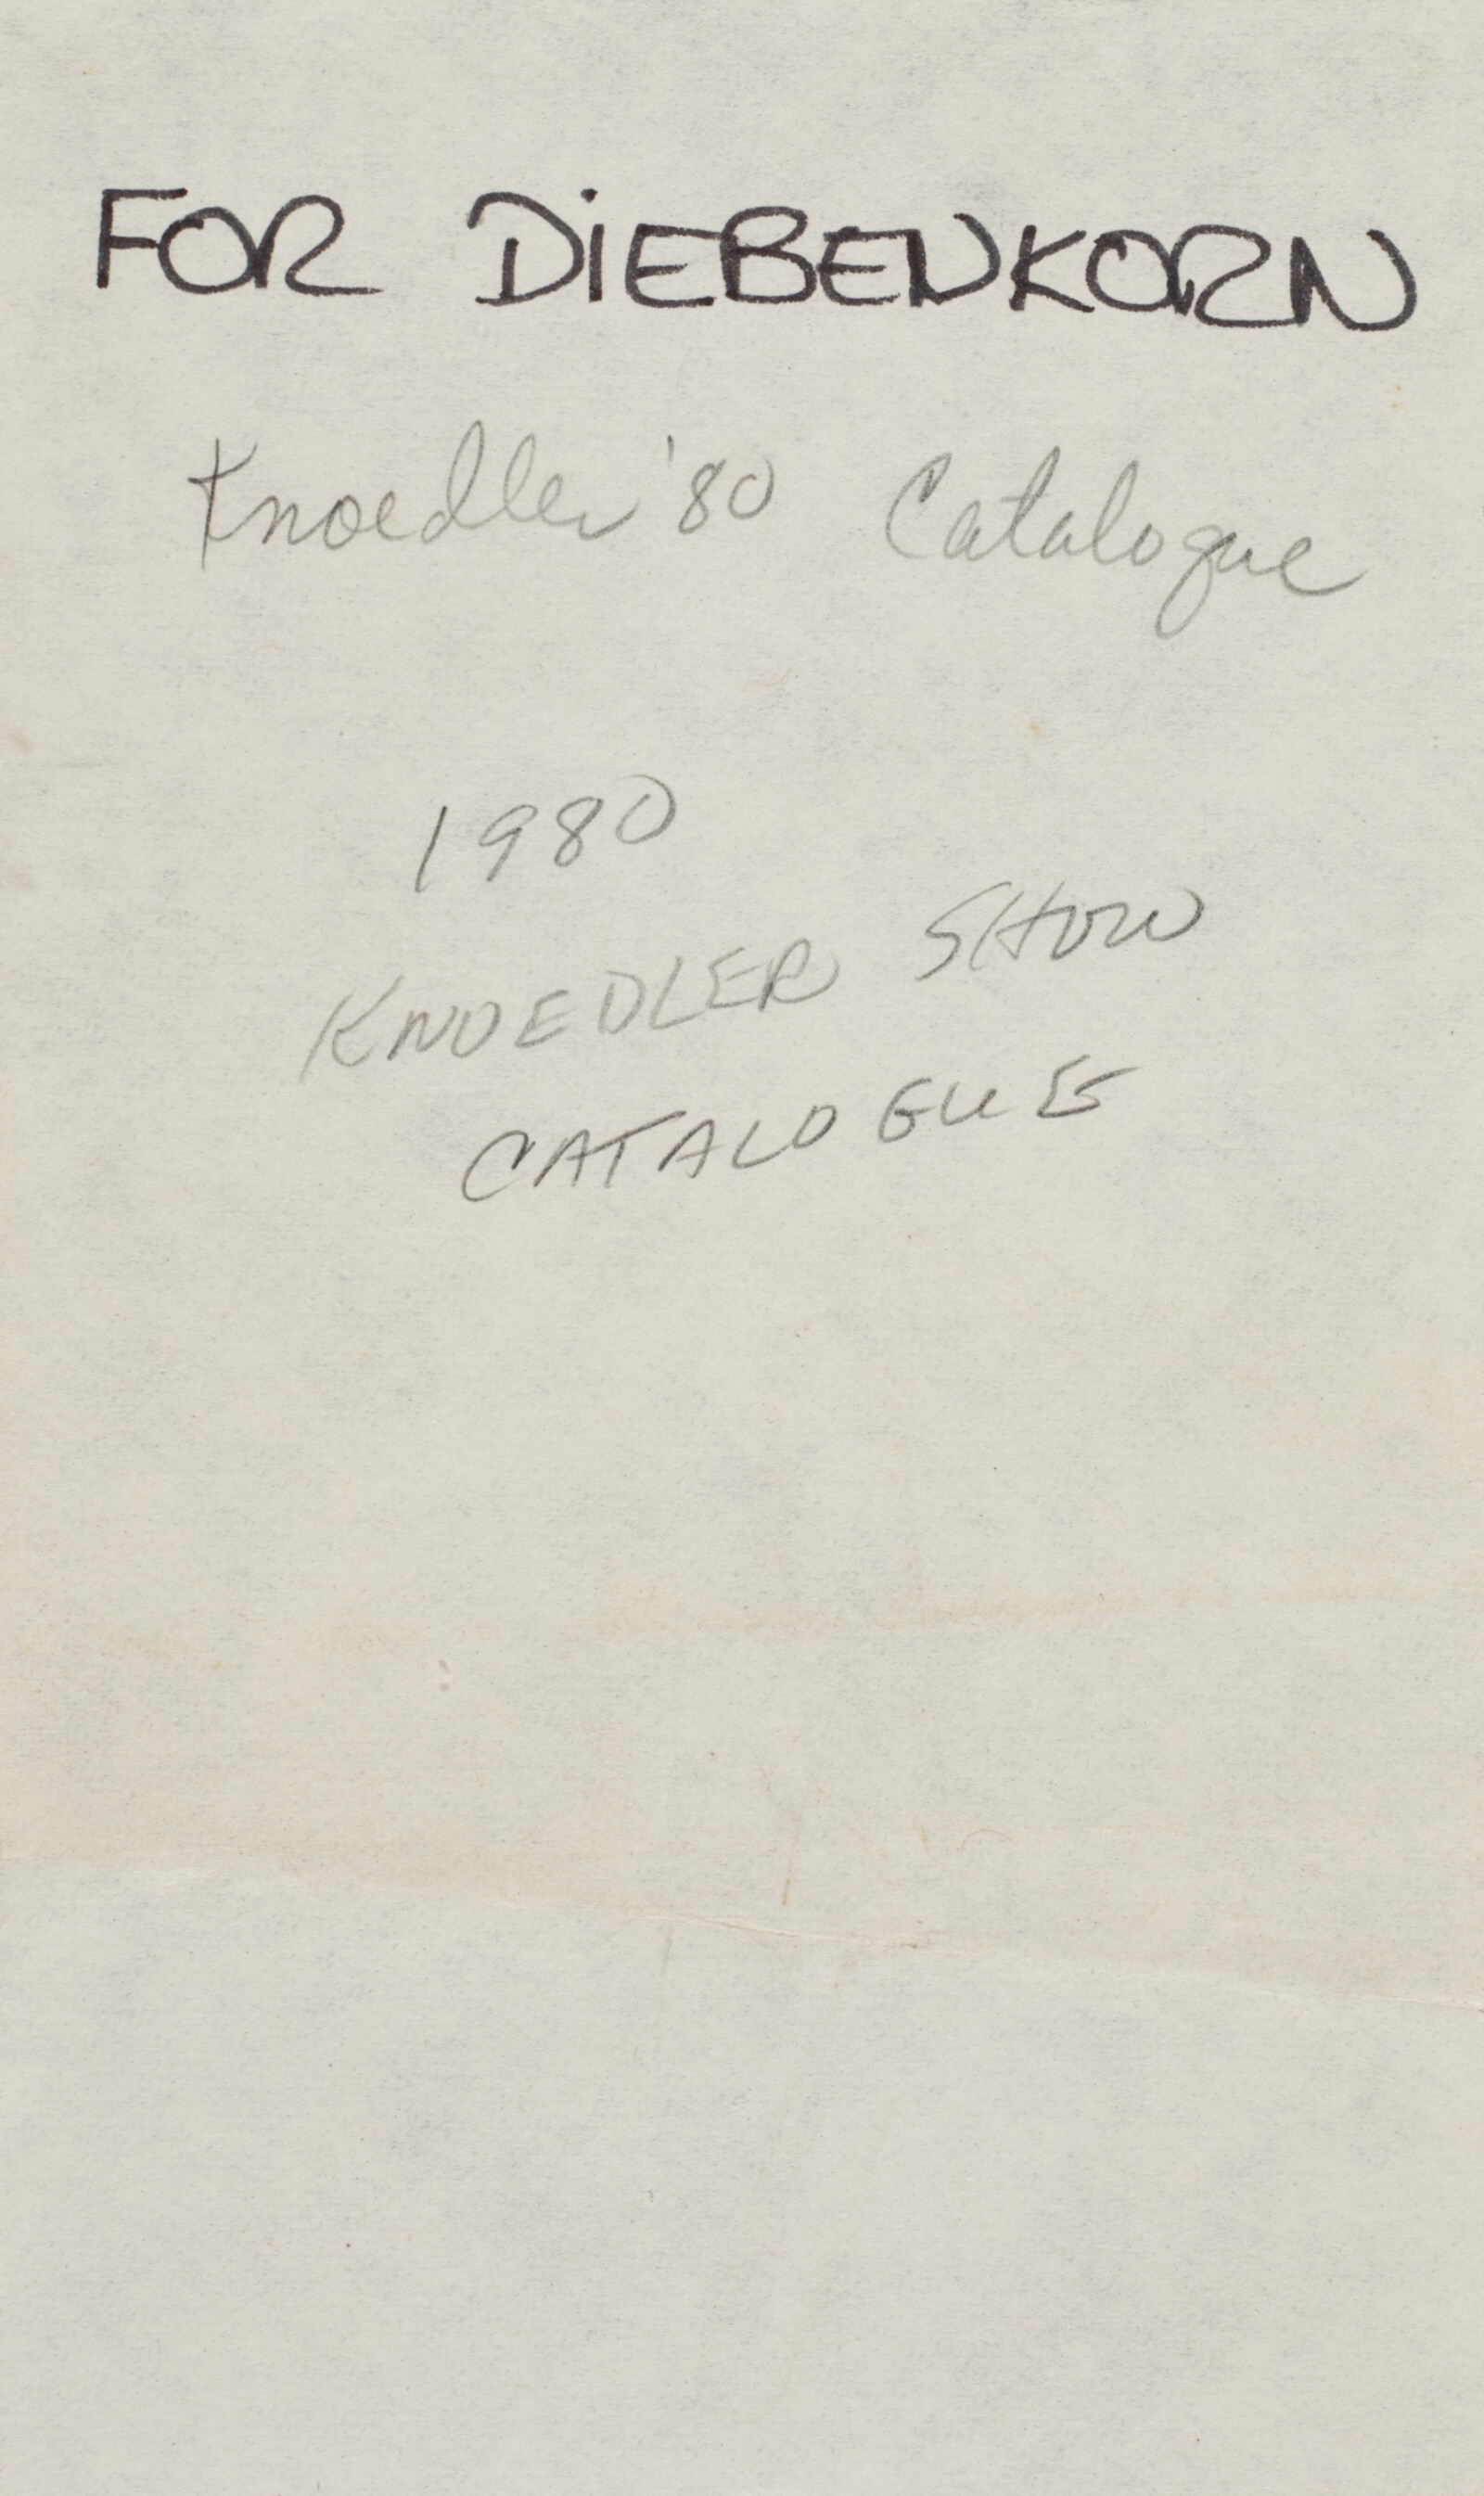 FOR DiEBENKORN
Knoedler '80 Catalogue
1980
KNOEDLER SHOW
CATALOGUE